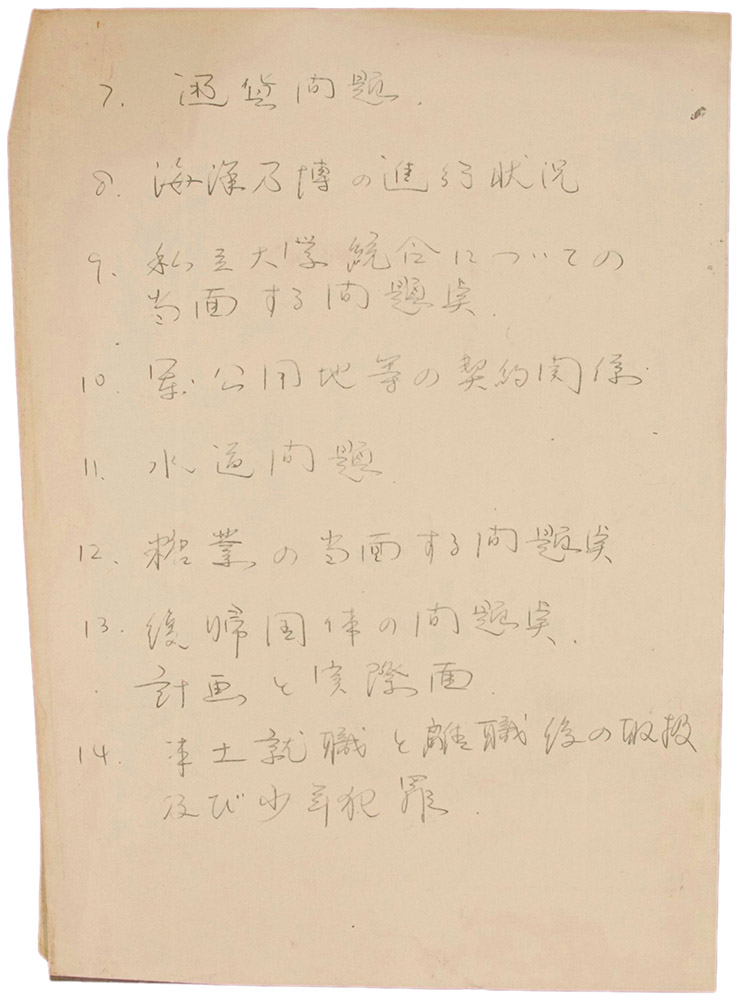 7. 通貨問題.
8. 海洋万博の進行状況
9. 私立大学統合についての
当面する問題点.
10. 軍公用地等の契約関係
11. 水道問題
12. 糖業の当面する問題点
13. 復帰国体の問題点.
計画と実際面.
14. 本土就職と離職後の取扱
及び少年犯罪.